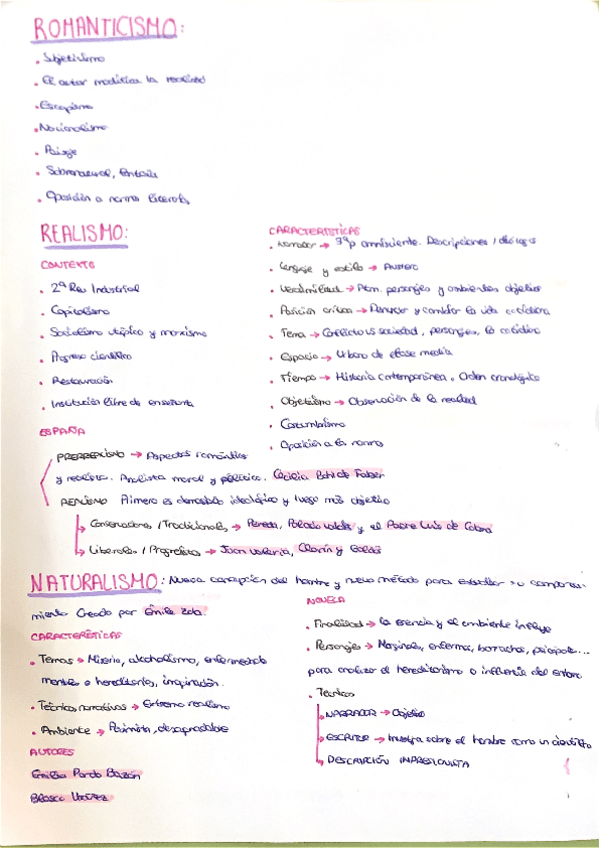 ROMANTICISMO:
• Subjetivismo
• El autor modifica la realidad
• Escapismo
• Nacionalismo
• Paisaje
• Sobrenatural, fantasía
• Oposición a normas literarias
REALISMO:
CONTEXTO
• 2ª Rev Industrial
• Capitalismo
• Socialismo utópico y marxismo
• Progreso científico
• Restauración
• Institución libre de enseñanza
CARACTERÍSTICAS
• Narrador → 3ªp omnisciente. Descripciones / diálogos
• Lenguaje y estilo → Austero
• Verosimilitud → personajes y ambientes objetivos
• Posición crítica → Denunciar y cambiar la vida cotidiana
• Tema → Conflicto vs sociedad, personajes, lo cotidiano
• Espacio → Urbano de clase media
• Tiempo → Historia contemporánea. Orden cronológico
• Objetivismo → Observación de la realidad
• Costumbrismo
• Oposición a las normas
ESPAÑA
PRERREALISMO → Aspectos románticos
y realistas. Analista moral y periódico. Cecilia Böhl de Faber
REALISMO Primero es demasiado ideológico y luego más objetivo
↳ Conservadores / Tradicionales → Pereda, Palacio Valdés y el Padre Luis de Coloma
↳ Liberales / Progresistas → Juan Valera, Clarín y Galdós
NATURALISMO: Nueva concepción del hombre y nuevo método para estudiar su comporta-
miento Creado por Émile Zola.
CARACTERÍSTICAS
• Temas → Miseria, alcoholismo, enfermedades
mentales o hereditarias,
• Técnicas narrativas → Extremo realismo
• Ambiente → Pesimista, desagradable
AUTORES
Emilia Pardo Bazán
Blasco Ibáñez
NOVELA
• Finalidad → la herencia y el ambiente influye
• Personajes → Marginales, enfermos, borrachos, psicópatas...
para analizar el hereditarismo o influencia del entorno.
• Técnicas
↳ NARRADOR → Objetivo
↳ ESCRITOR → Investiga sobre el hombre como un científico
↳ DESCRIPCIÓN IMPRESIONISTA